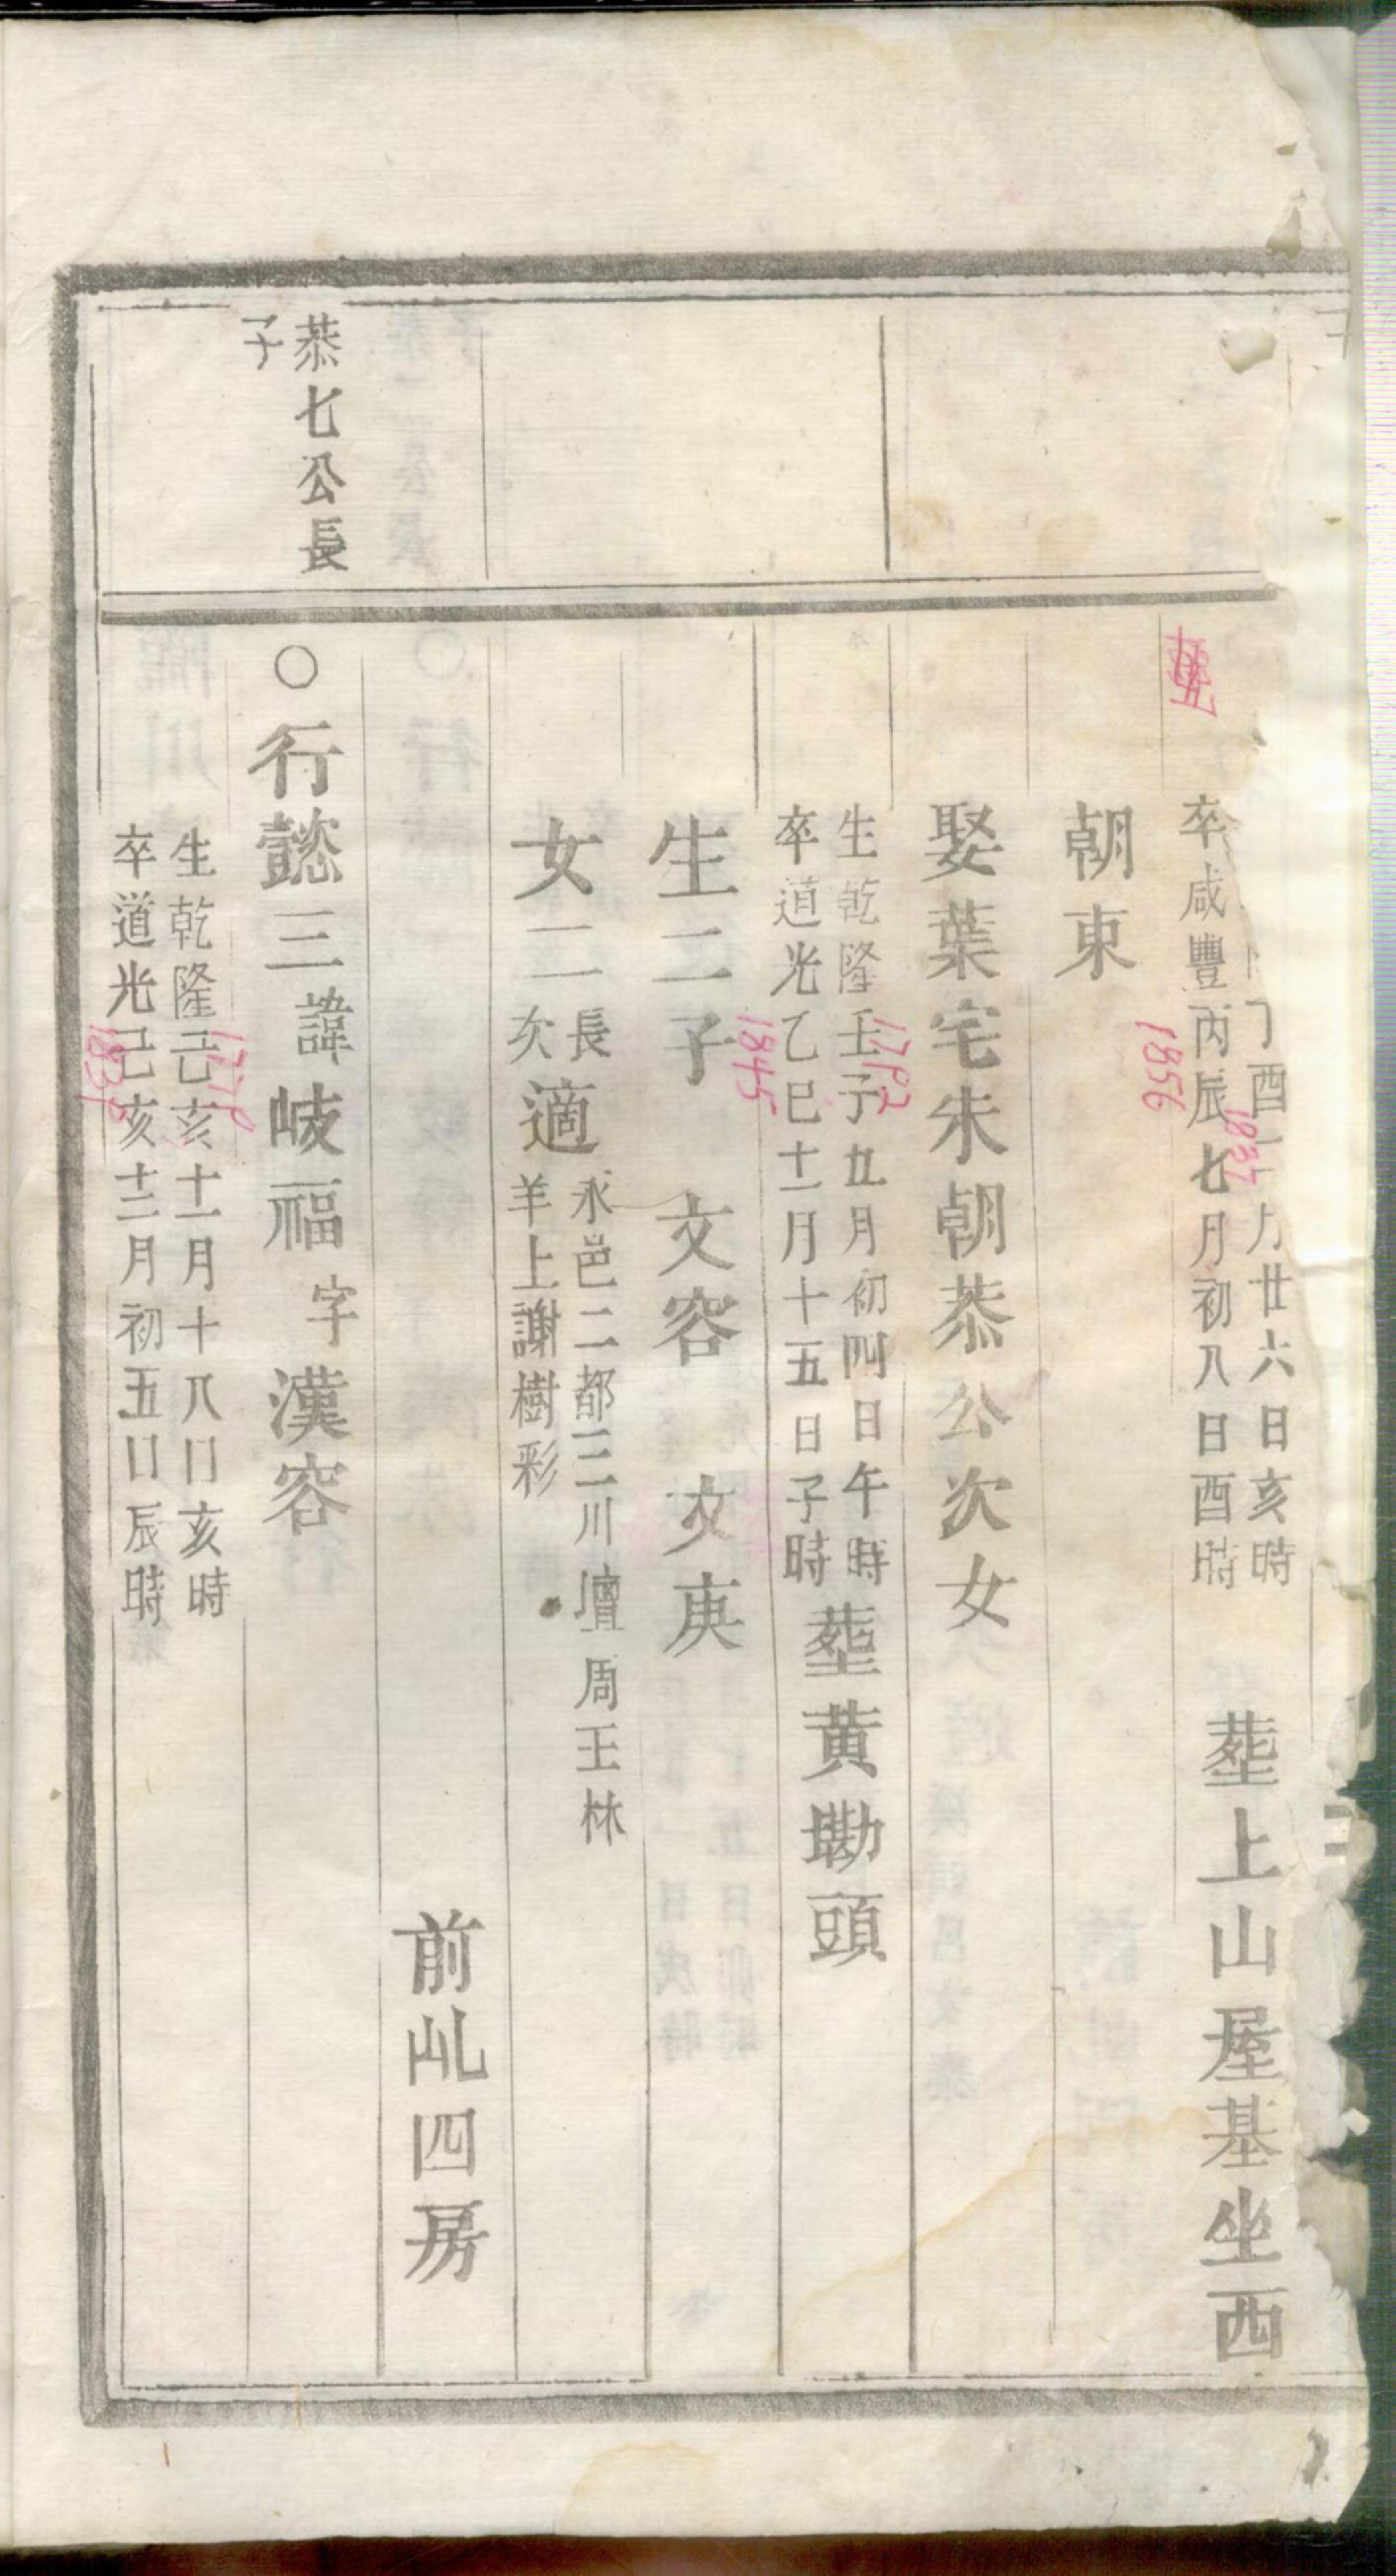 丁酉十一月廿六日亥時
1837
卒咸豐丙辰七月初八日酉時
1856
塟上山屋基坐西
朝東
娶葉宅朱朝恭公次女
生乾隆壬子九月初四日午時
1792
卒道光乙巳十一月十五日子時
1845
塟黄墈頭
生二子 文容 文庚
女二 長次適 永邑二都三川壇周王林
羊上謝樹彩
前乢四房
恭七公長
子
○行懿三諱岐福字漢容
生乾隆己亥十一月十八日亥時
1779
卒道光己亥十二月初五日辰時
1839